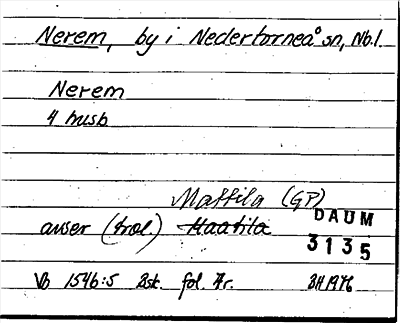 Nerem, by i Nedertorneå sn, Nb.l.
Nerem
4 husb
Mattila (GP)
avser (trol.) Haatila
DAUM
3135
Vb 1546:5 Bsk. fol. Är. BH 1976